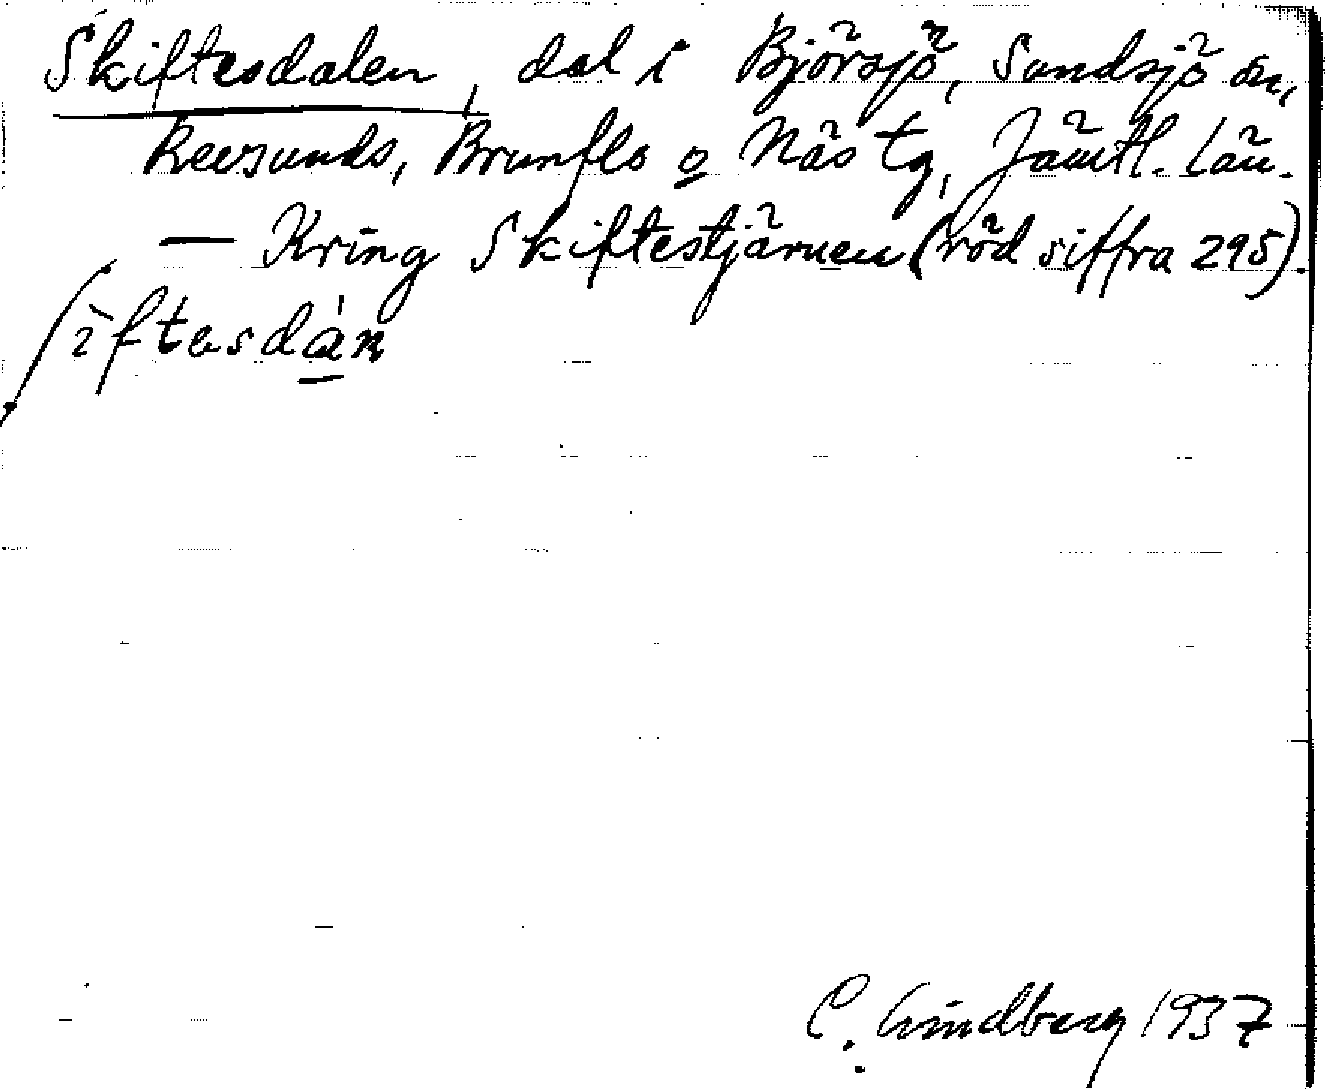 Skiftesdalen, dal i Björsjö, Sundsjö sn,
Revsunds, Brunflo o Näs tg, Jämtl. län.
— Kring Skiftestjärnen (röd siffra 295).
ʃìftasdán
C. Lindberg 1937